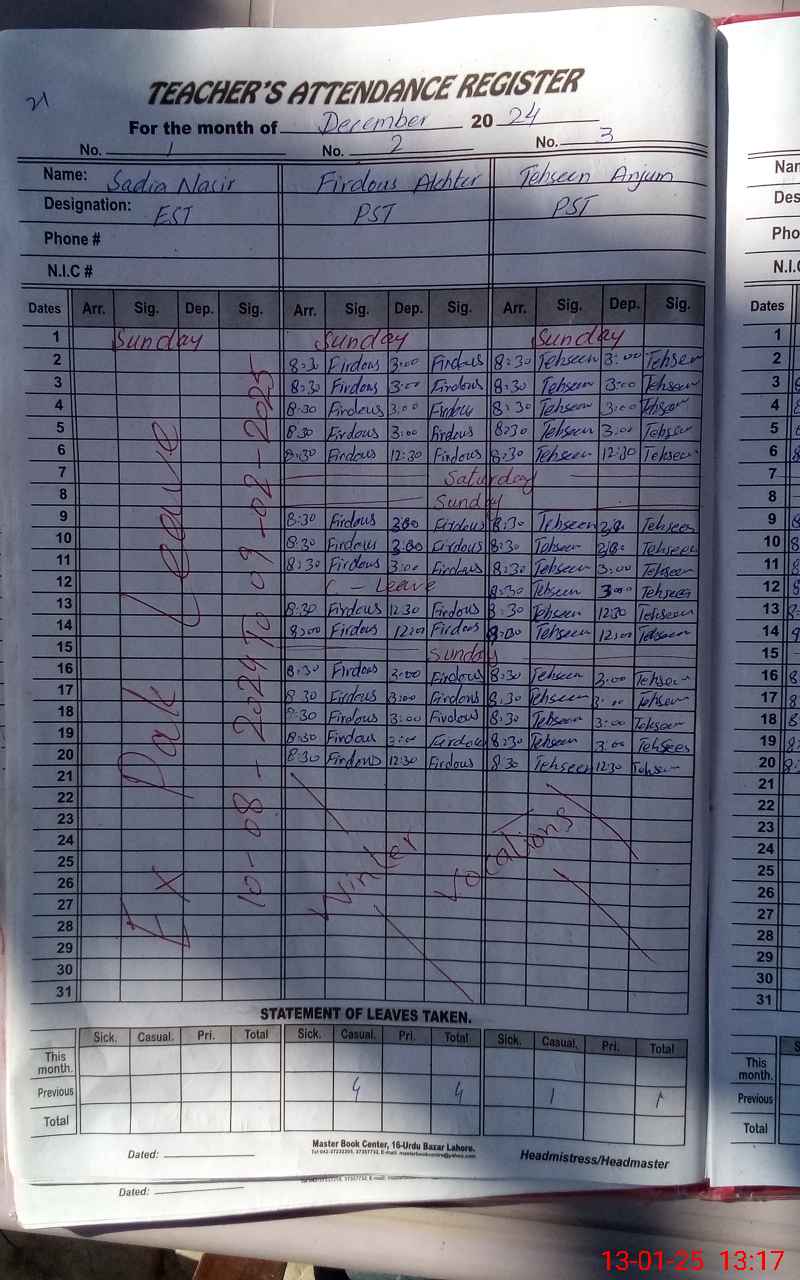 21
TEACHER'S ATTENDANCE REGISTER
For the month of December 20 24
No. 1 No. 2 No. 3
Name: Sadia Nasir Firdous Akhter Tehseen Anjum
Designation: EST PST PST
Phone #
N.I.C #
Dates Arr. Sig. Dep. Sig. Arr. Sig. Dep. Sig. Arr. Sig. Dep. Sig.
1 Sunday Sunday Sunday
2 8:30 Firdous 3:00 Firdous 8:30 Tehseen 3:00 Tehseen
3 8:30 Firdous 3:00 Firdous 8:30 Tehseen 3:00 Tehseen
4 8:30 Firdous 3:00 Firdous 8:30 Tehseen 3:00 Tehseen
5 8:30 Firdous 3:00 Firdous 8:30 Tehseen 3:00 Tehseen
6 8:30 Firdous 12:30 Firdous 8:30 Tehseen 12:30 Tehseen
7 Saturday
8 Sunday
9 8:30 Firdous 3:00 Firdous 8:30 Tehseen 3:00 Tehseen
10 8:30 Firdous 3:00 Firdous 8:30 Tehseen 3:00 Tehseen
11 8:30 Firdous 3:00 Firdous 8:30 Tehseen 3:00 Tehseen
12 C - Leave 8:30 Tehseen 3:00 Tehseen
13 8:30 Firdous 12:30 Firdous 8:30 Tehseen 12:30 Tehseen
14 8:00 Firdous 12:00 Firdous 8:00 Tehseen 12:00 Tehseen
15 Sunday
16 8:30 Firdous 3:00 Firdous 8:30 Tehseen 3:00 Tehseen
17 8:30 Firdous 3:00 Firdous 8:30 Tehseen 3:00 Tehseen
18 8:30 Firdous 3:00 Firdous 8:30 Tehseen 3:00 Tehseen
19 8:30 Firdous 3:00 Firdous 8:30 Tehseen 3:00 Tehseen
20 8:30 Firdous 12:30 Firdous 8:30 Tehseen 12:30 Tehseen
21
22
23
24
25
26
27
28
29
30
31
Ex Pak Leave
10-08-2024 To 09-02-2025
Winter Vocations
STATEMENT OF LEAVES TAKEN.
Sick. Casual. Pri. Total Sick. Casual. Pri. Total Sick. Casual. Pri. Total
This month.
Previous 4 4 1 1
Total
Dated:
Master Book Center, 16-Urdu Bazar Lahore.
Headmistress/Headmaster
Dated:
Dates
1
2
3
4
5
6
7
8
9
10
11
12
13
14
15
16
17
18
19
20
21
22
23
24
25
26
27
28
29
30
31
This month.
Previous
Total
13-01-25 13:17